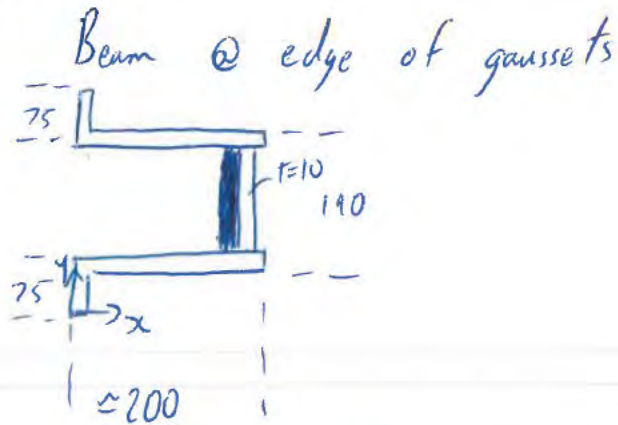 Beam @ edge of gaussets
75
t=10
190
75
y
x
≃200